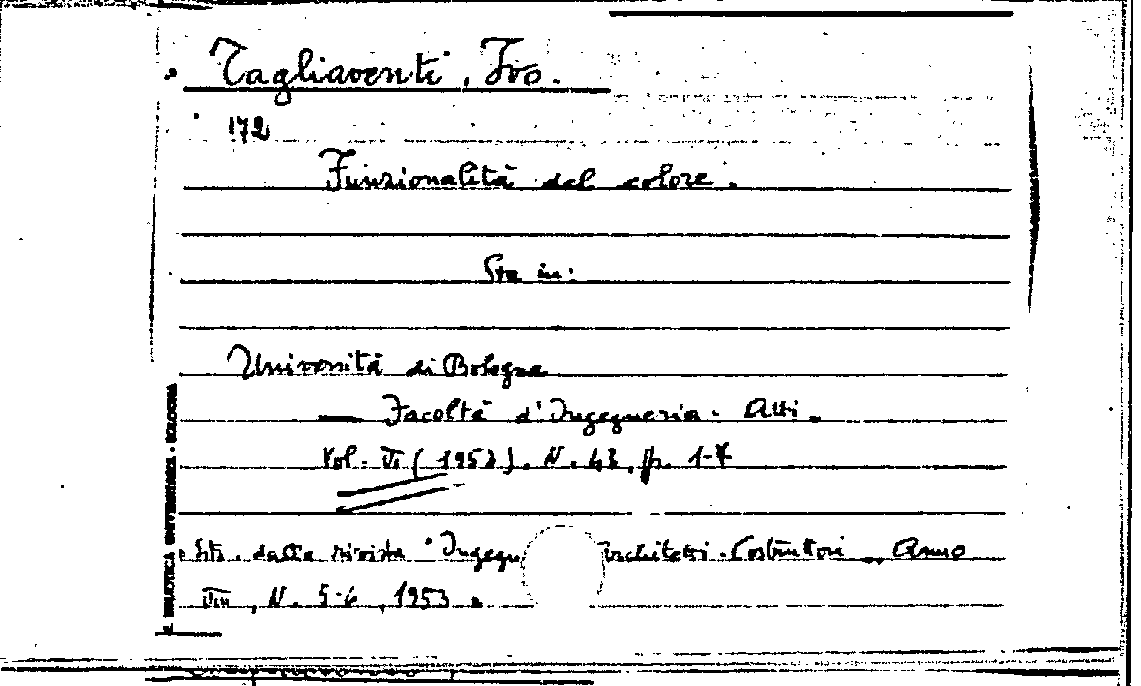 Tagliaventi, Ivo.
172
Funzionalità del colore.
Sta in:
Università di Bologna
— Facoltà d'Ingegneria. Atti.
Vol. VI (1953). N. 43, p. 1-7
Estr. dalla rivista "Ingegn Architetti-Costruttori", Anno
VIII, N. 5-6, 1953.
BIBLIOTECA UNIVERSITARIA - BOLOGNA